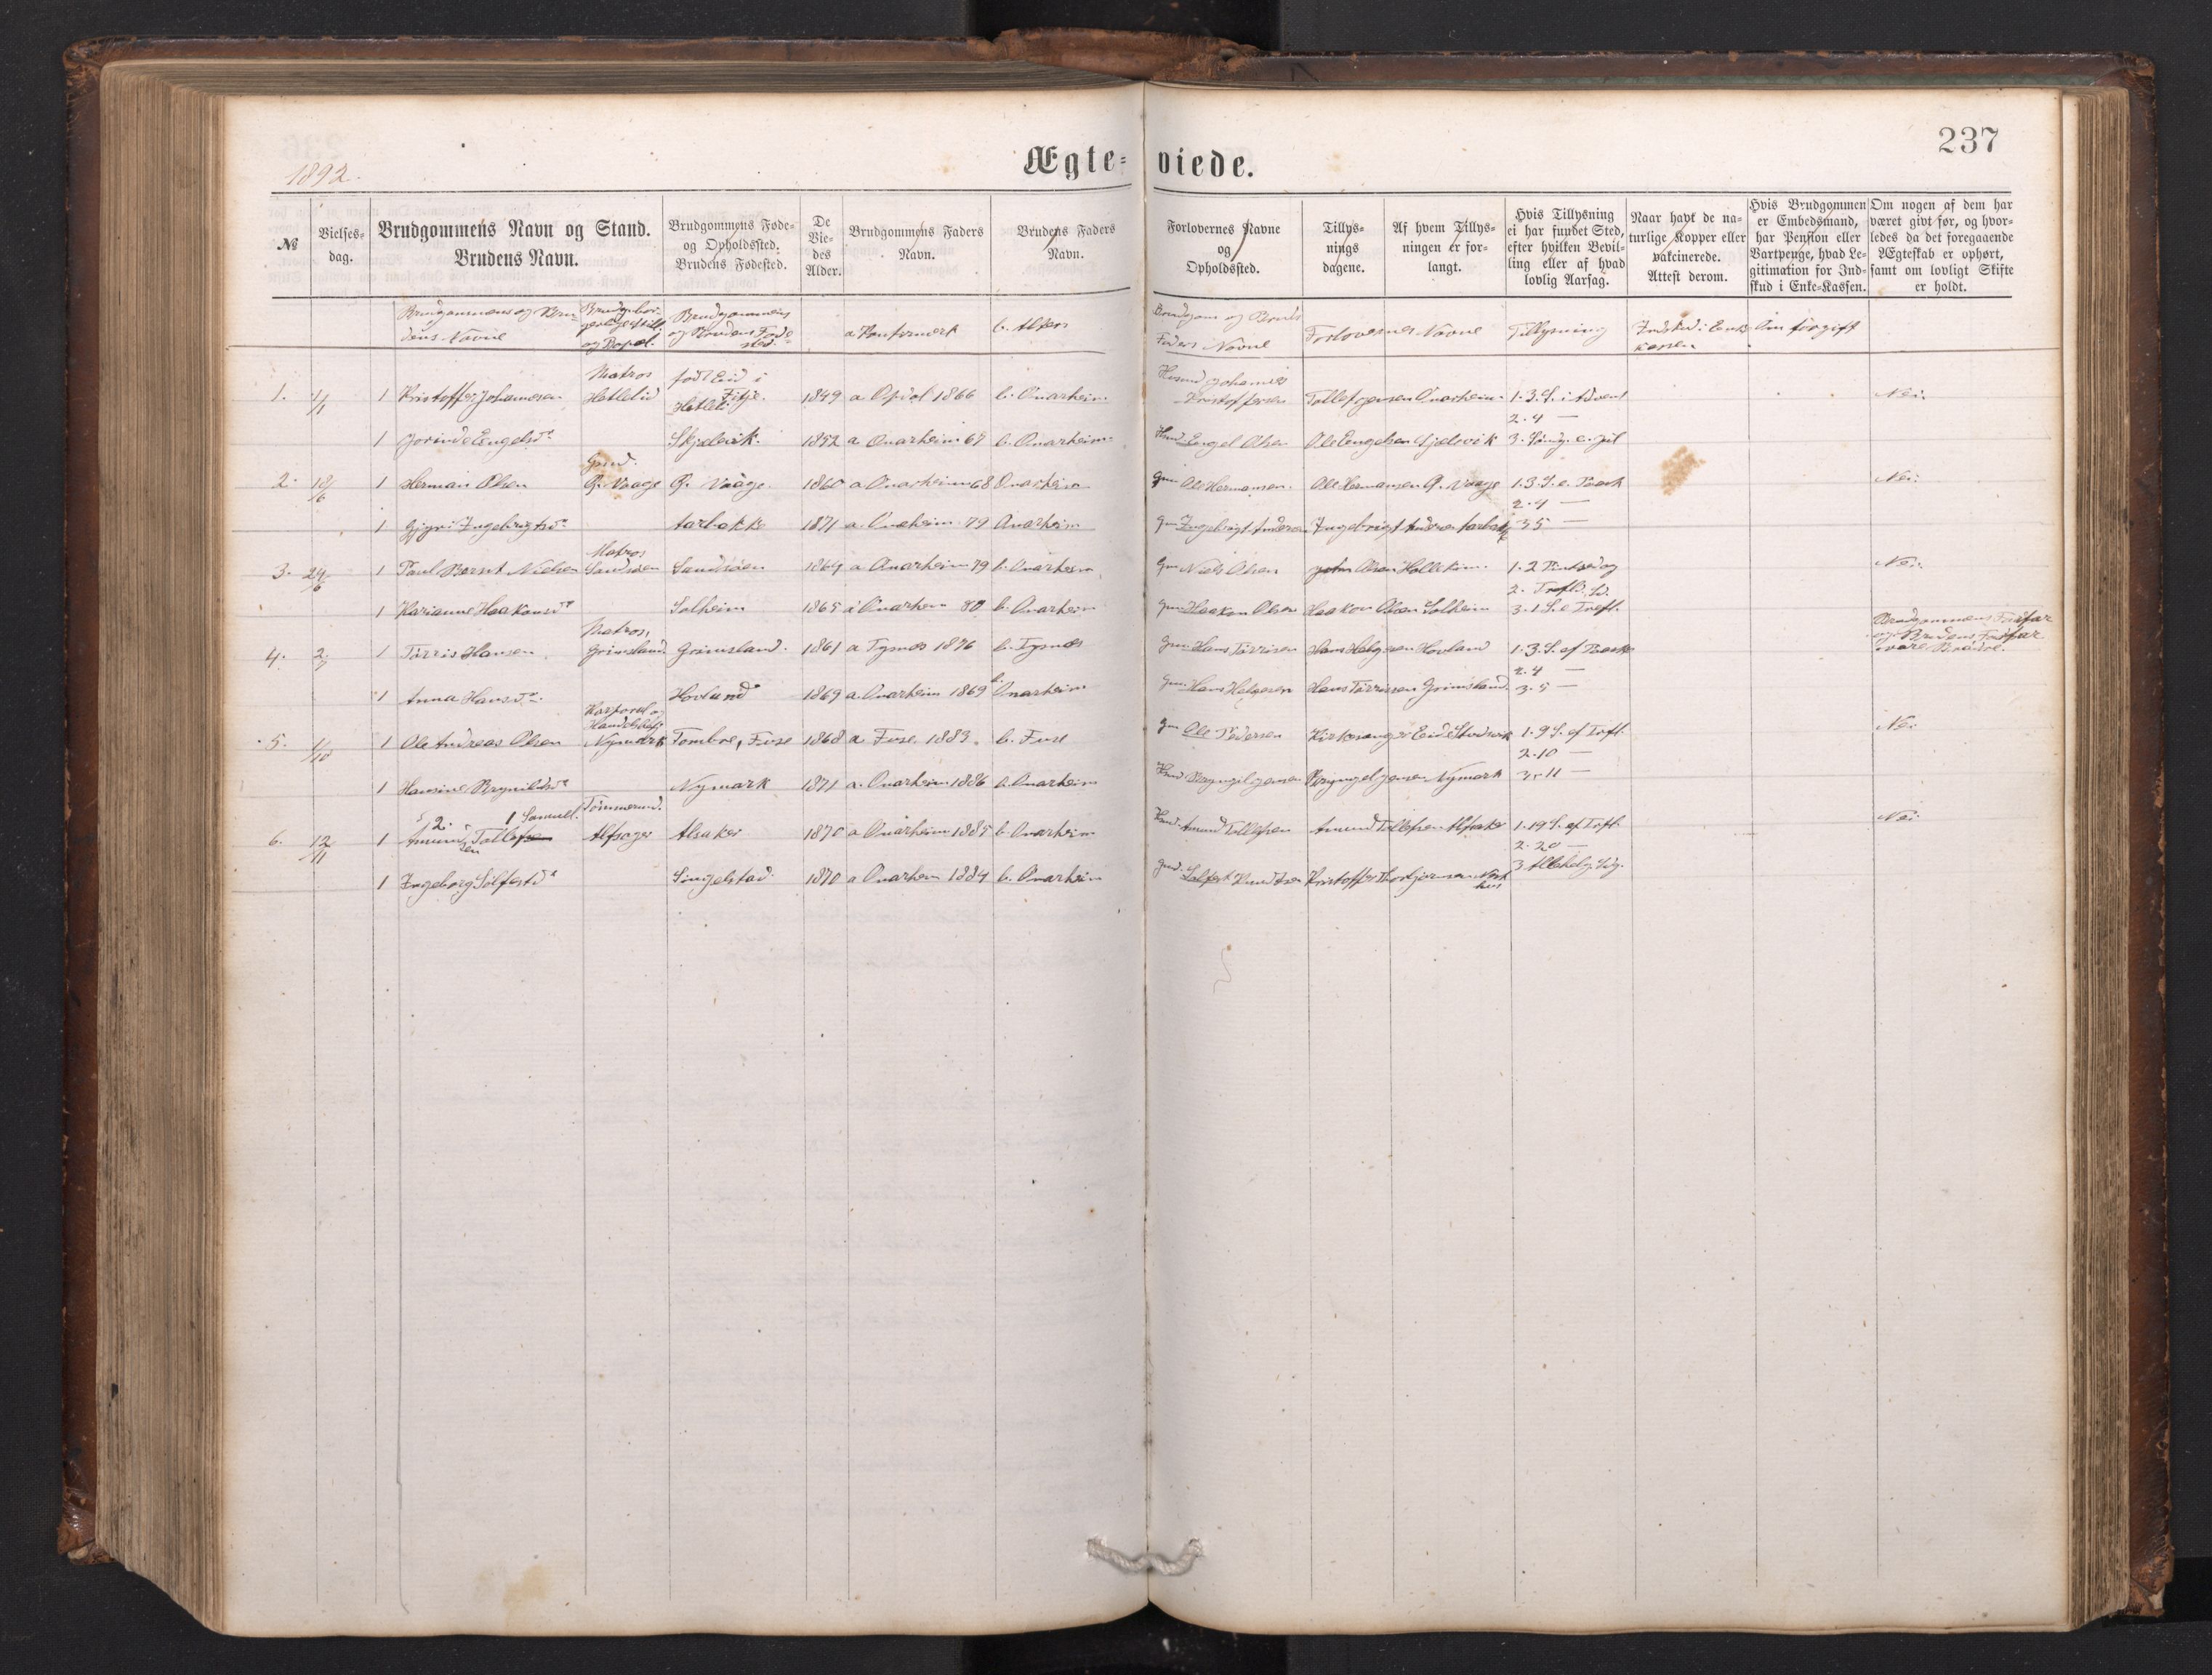 237
1892.
Ægte-viede.
№
Vielses-
dag.
Brudgommens Navn og Stand.
Brudens Navn.
Brudgommens Føde-
og Opholdssted.
Brudens Fødested.
De
Vie-
des
Alder.
Brudgommens Faders
Navn.
Brudens Faders
Navn.
Forlovernes Navne
og
Opholdssted.
Tillys-
nings
dagene.
Af hvem Tillys-
ningen er for-
langt.
Hvis Tillysning
ei har fundet Sted,
efter hvilken Bevil-
ling eller af hvad
lovlig Aarsag.
Naar havt de na-
turlige Kopper eller
vakcinerede.
Attest derom.
Hvis Brudgommen
er Embedsmand,
har Pension eller
Vartpenge, hvad Le-
gitimation for Ind-
skud i Enke-Kassen.
Om nogen af dem har
været givt før, og hvor-
ledes da det foregaaende
Ægteskab er ophørt,
samt om lovligt Skifte
er holdt.
Brudgommens og Bru-
dens Navne
og Bopæl.
Brudgommens
og Brudens Føde-
sted.
a Konfirmert
b. Alter
Brudgom og Bruds
Faders Navne
Forlovernes Navne
Tillysning
Indskud i Enke
kassen
Om før gift
1. 1/1 1 Kristoffer Johannesen Matros Hetletid født Eid i Fitje. Hetlet 1849 a Opdal 1866 b. Onarheim Husmd Johannes Kristoffersen Tollef Jensen Onarheim 1. 3. S. i Advent Nei.
2. 4 —
1 Jorinde Engelsdr Skjelvik. 1852 a Onarheim 67 b. Onarheim Husmd Engel Olsen Ole Engelsen Sjelvik 3. Sønd. e. Jul
2. 12/6 1 Herman Olsen Gmd. G. Vaage G. Vaage 1860 a Onarheim 68 Onarheim Gm Ole Hermansen Ole Hermansen G. Vaage 1. 3. S. e. Paask Nei.
2. 4 —
1 Gjyri Ingebrigtsdr Aarbakke 1871 a. Onarheim 79 Onarheim Gm Ingebrigt Andersen Ingebrigt Andersen Aarbakke 3 5 —
3. 24/6 1 Paul Bernt Nielsen Matros Sandsøen Sandsøen 1864 a Onarheim 79 b. Onarheim Gm Niels Olsen Olsen Hollekim 1. 2 Pintsedag Nei.
2. Trefld. Sd.
1 Marianne Haakonsdr Solheim 1865 a Onarheim 80 b. Onarheim Gm Haakon Olsen Haakon Olsen Solheim 3. 1 S. e Treft.
4. 2/7 1 Tørris Hansen Matros, Grimsland Grimsland. 1861 a Tysnes 1876 b. Tysnes Gm Hans Tørrisen Hans Helgesen Hovland 1. 3. S. ef Paaske Brudgommens Farfar
og Brudens Farfar
vare Brødre.
2. 4 —
1 Anna Hansdr Hovland 1869 a. Onarheim 1869 b. Onarheim Gm Hans Helgesen Hans Tørrisen Grimsland. 3. 5 —
5. 1/10 1 Ole Andreas Olsen Korporal og Nymark Tombre, Fuse 1868 a Fuse 1883. b. Fuse Gm Ole Pedersen Kirkesanger Eid 1. 9 S. ef Treft. Nei
2. 10 —
1 Hansine Brynildsdr Nymark 1871 a. Onarheim 1886 b. Onarheim Husmd Nymark 3. 11 —
6. 12/11 1 2. Amund Tollefsen 1 Samuel. Tømmermd. Alsager Alsaker 1870 a Onarheim 1885 b Onarheim Husmd Amund Tollefsen Amund Tollefsen Alsaker 1. 19 S. ef Treft. Nei
2. 20 —
1 Ingeborg Sølfestdr Singelstad 1870 a Onarheim 1884 b. Onarheim Gmd. Sølfest Knudtsen Kristoffer Thorbjørnsen 3 Allehelg. Sdg.